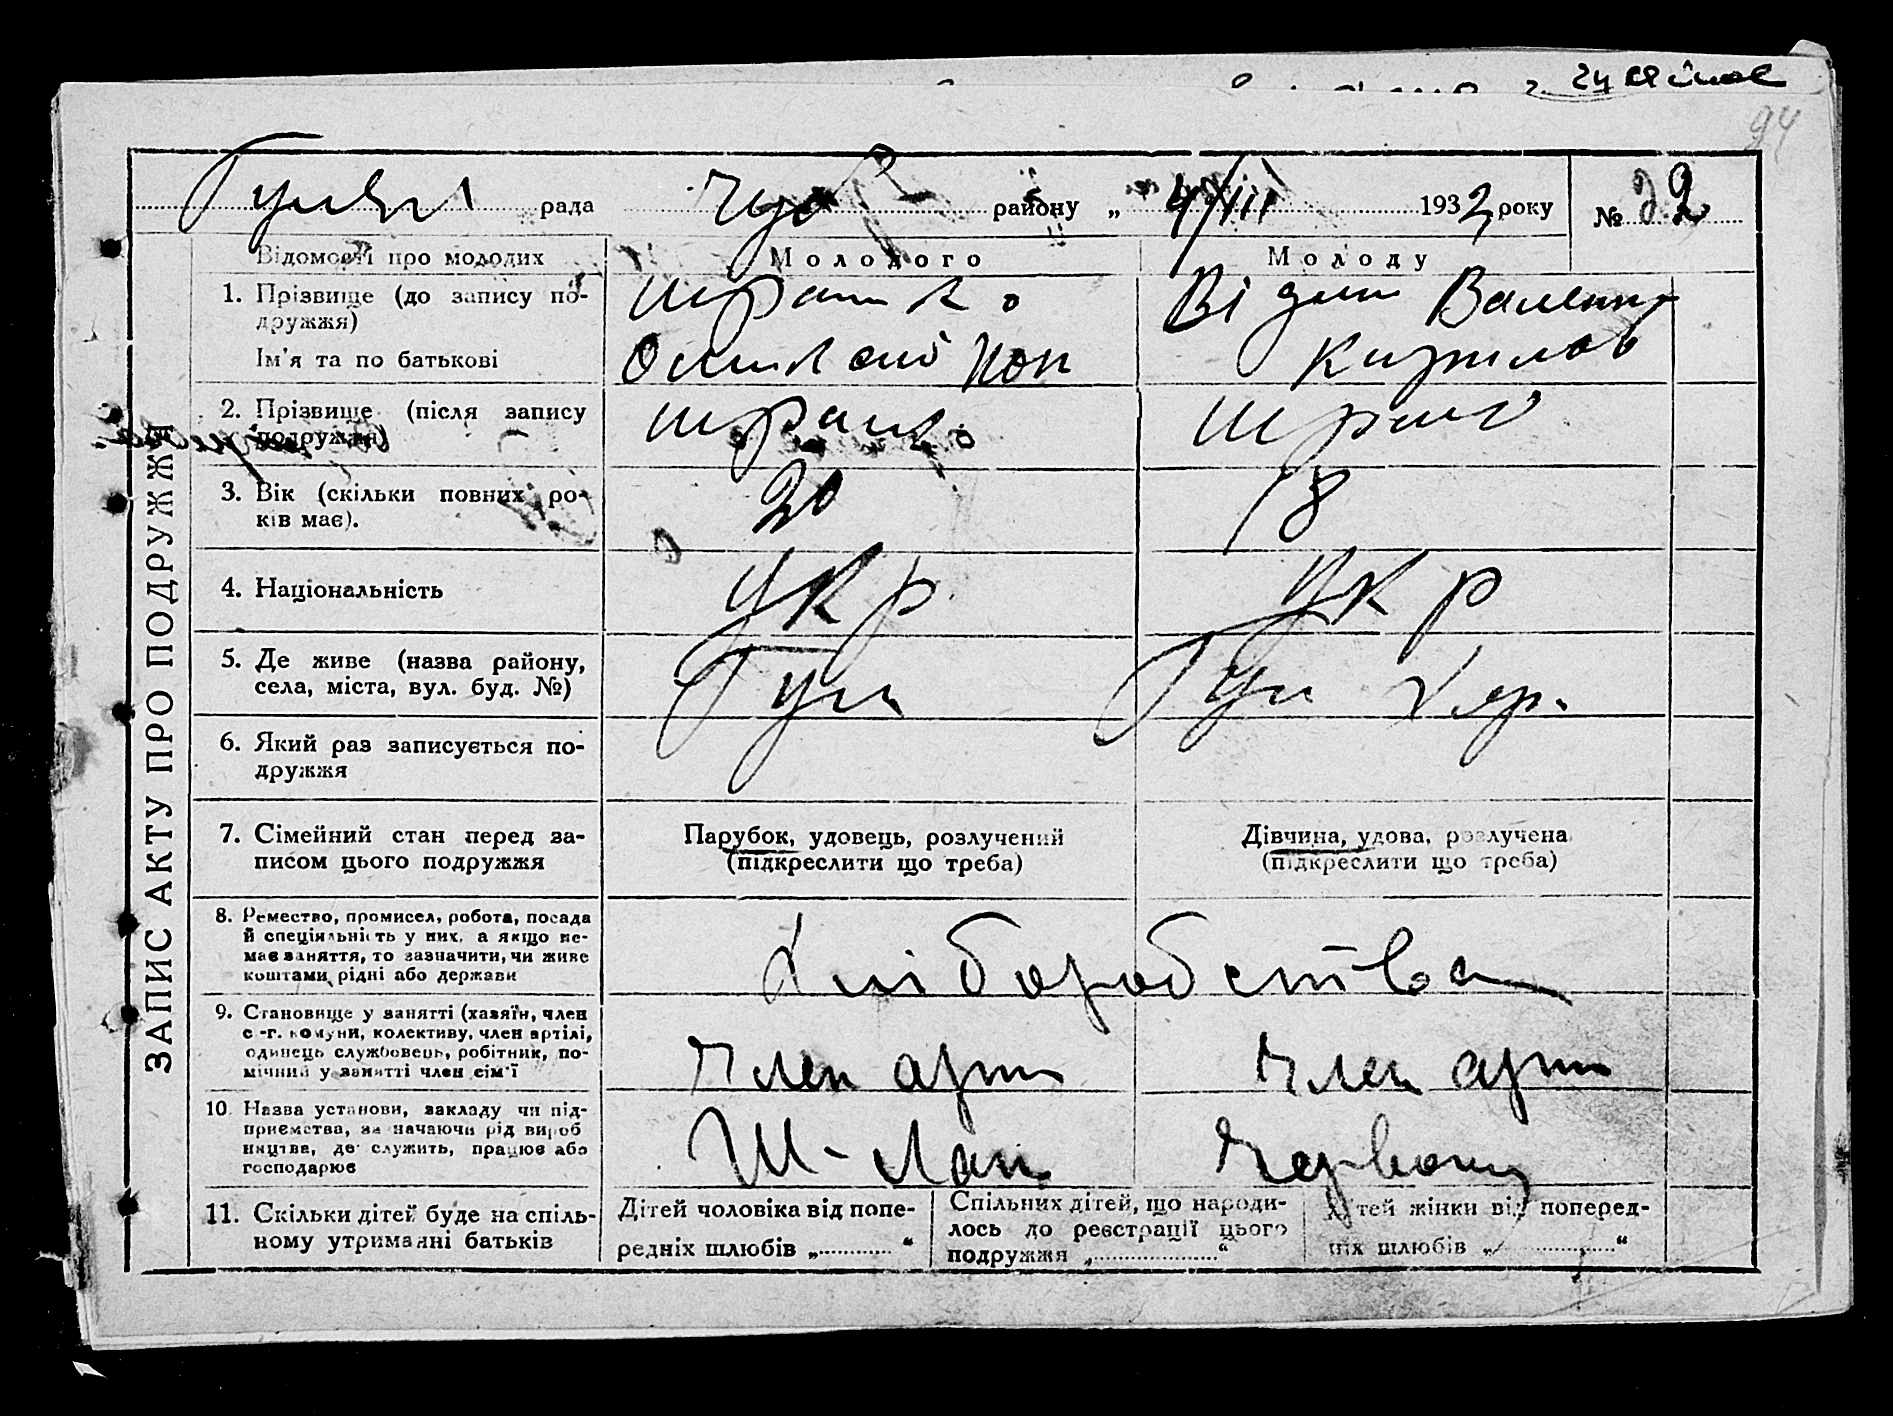 94
рада Чуд району „ 4/XII 1932 року № 22
ЗАПИС АКТУ ПРО ПОДРУЖЖЯ
Відомості про молодих
Молодого
Молоду
1. Прізвище (до запису по-
дружжя)
Ім'я та по батькові
2. Прізвище (після запису
подружжя)
3. Вік (скільки повних ро-
ків має).
20
18
4. Національність
Укр
Укр
5. Де живе (назва району,
села, міста, вул. буд. №)
6. Який раз записується по-
дружжя
7. Сімейний стан перед за-
писом цього подружжя
Парубок, удовець, розлучений
(підкреслити що треба)
Дівчина, удова, розлучена
(підкреслити що треба)
8. Ремество, промисел, робота, посада
й спеціяльність у них, а якщо не-
має заняття, то зазначити, чи живе
коштами рідні або держави
Хліборобства
9. Становище у занятті (хазяїн, член
с.-г. комуни, колективу, член артілі,
одинець службовець, робітник, по-
мічний у занятті член сім'ї
Член арт
Член арт
10. Назва установи, закладу чи під-
приємства, зазначаючи рід вироб
ництва, де служить, працює або
господарює
Ш-Лан
Червоний
11. Скільки дітей буде на спіль-
ному утриманні батьків
Дітей чоловіка від попе-
редніх шлюбів „ “
Спільних дітей, що народи-
лось до реєстрації цього
подружжя „ “
Дітей жінки від поперед-
ніх шлюбів „ “